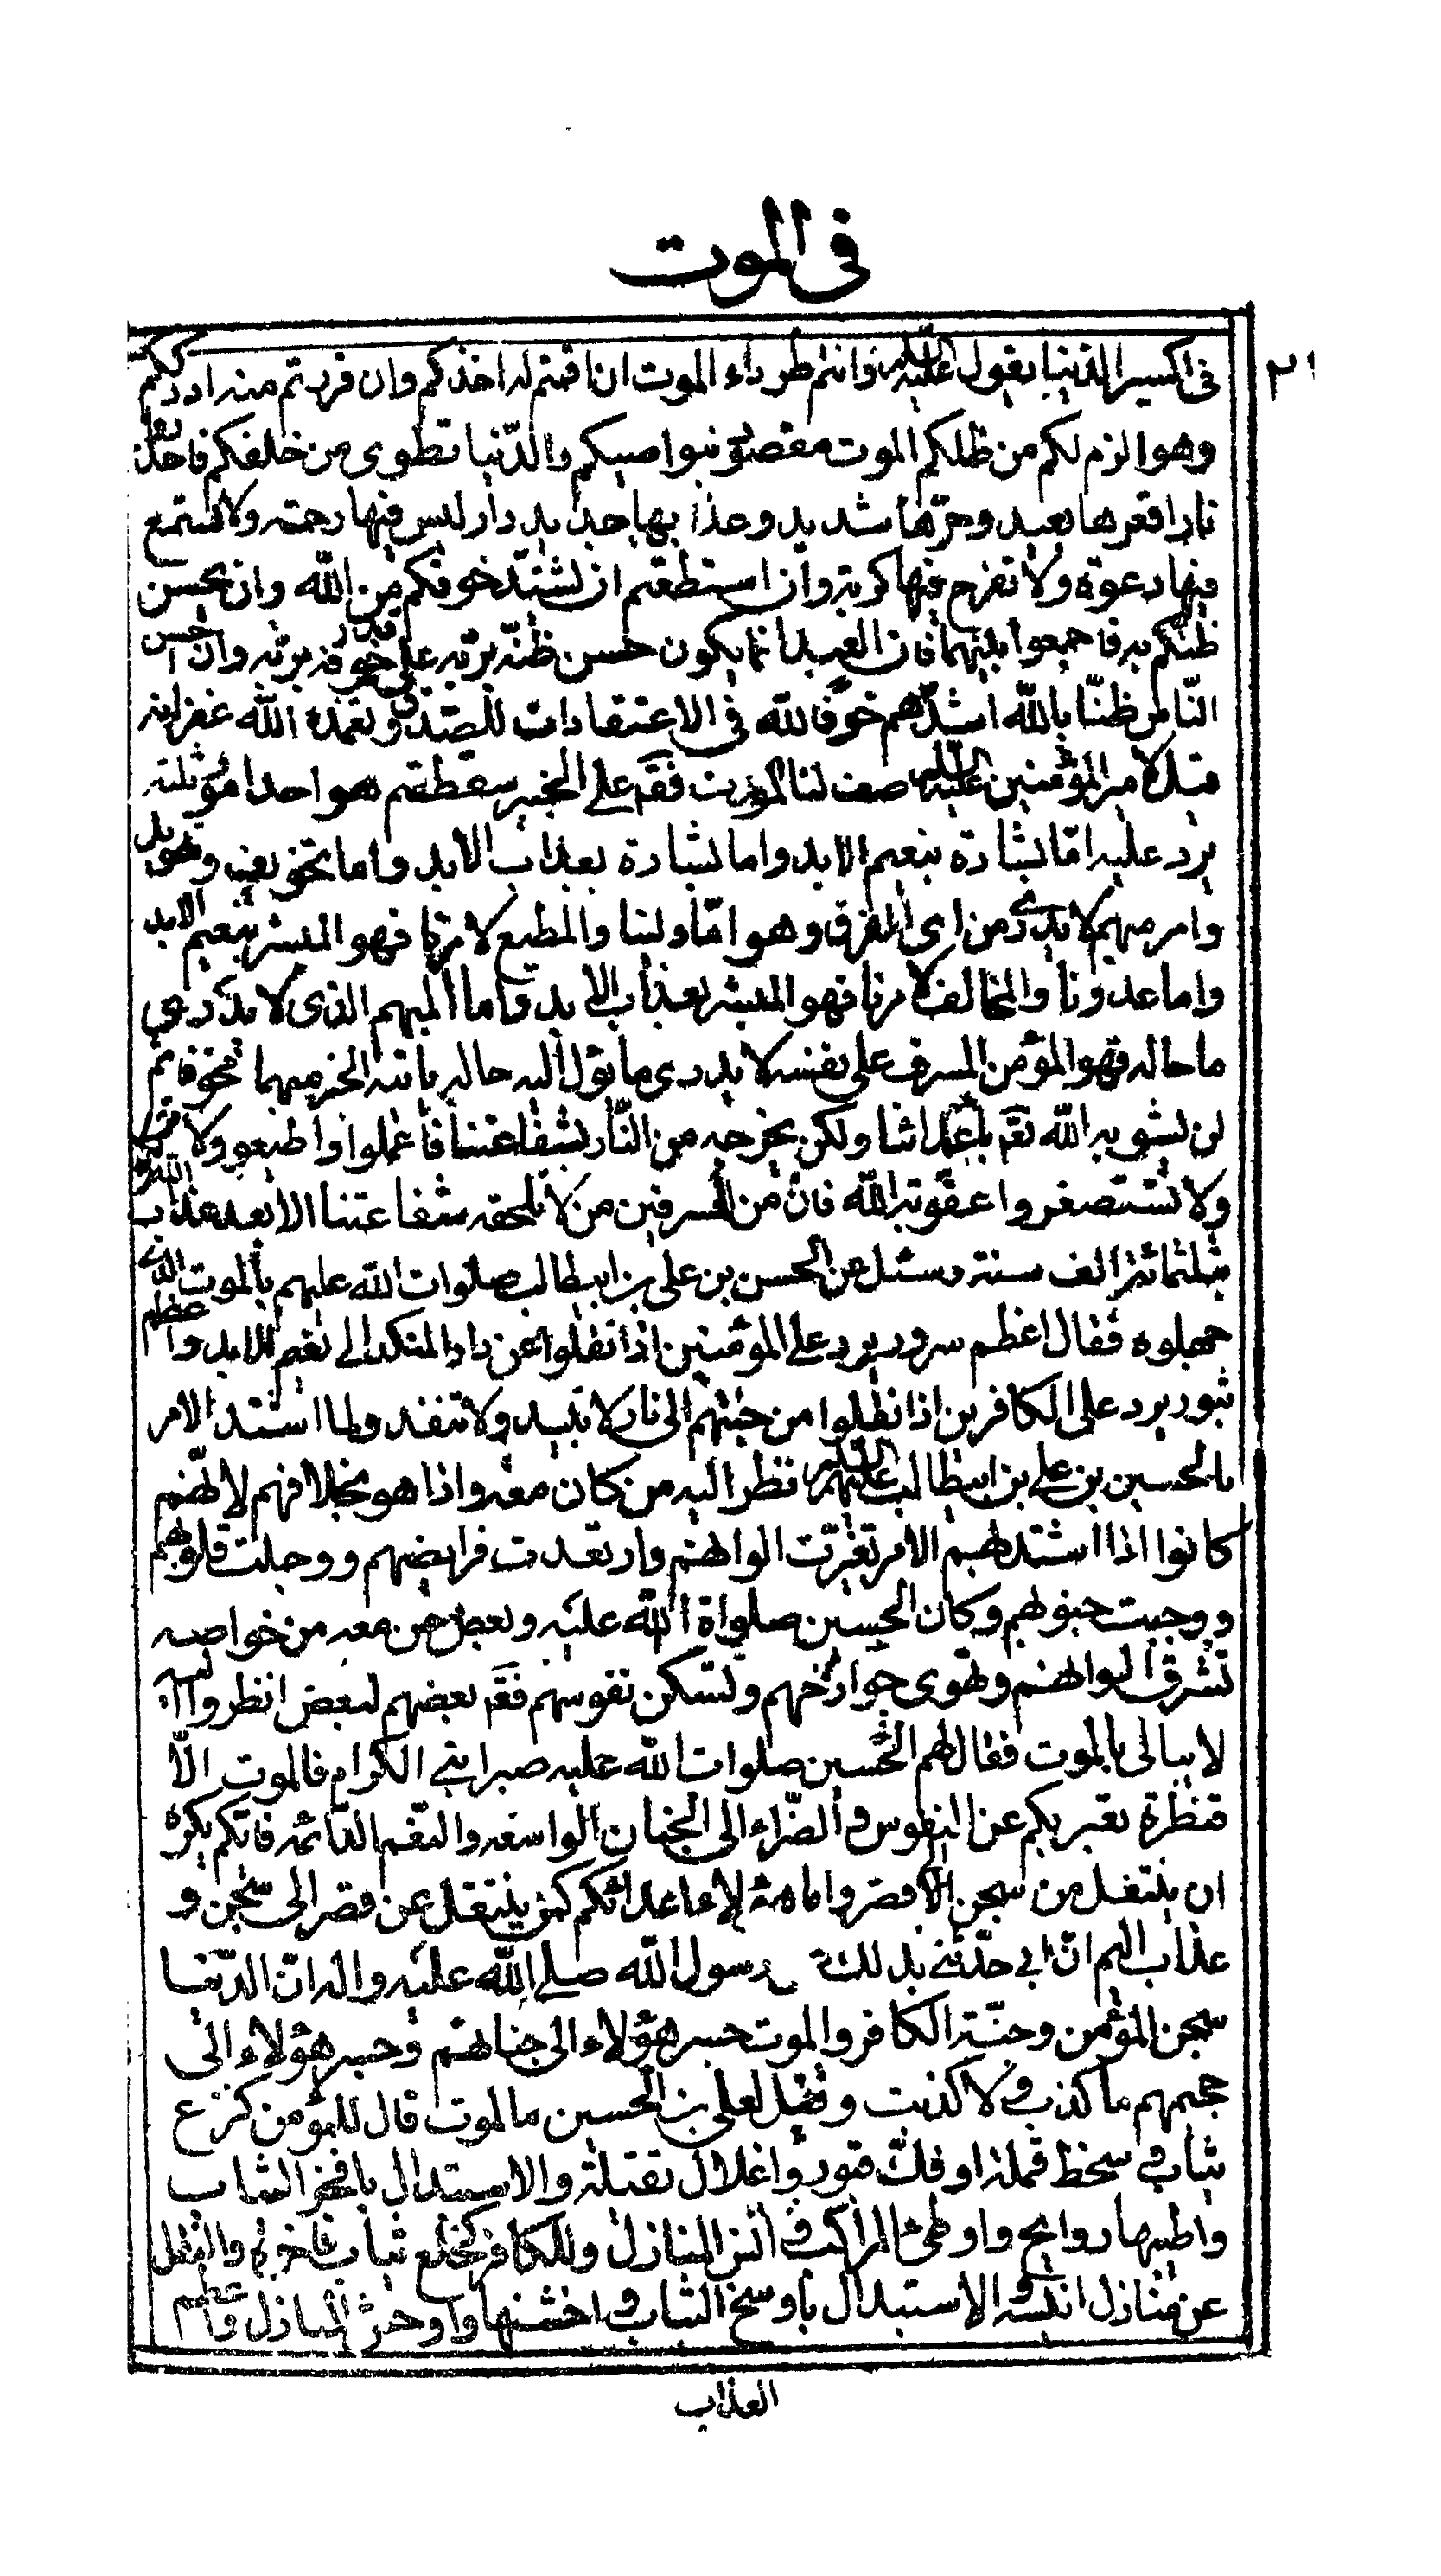 فى الموت
٢١
فى اكسير الدنيا يقول عليه السلم وانتم طرداء الموت ان اقمتم له اخذكم وان فررتم منه ادرككم
وهو الزم لكم من ظلكم الموت معقود بنواصيكم والدّنيا تطوى من خلفكم فاحذروا
نارا قعرها بعيد وحرّها شديد وعذابها جديد دار ليس فيها رحمة ولا تستمع
فيها دعوة ولا تفرج فيها كربة وان استطعتم ان يشتدّ خوفكم من الله وان يحسن
ظنّكم به فاجمعوا بينهما فان العبد انما يكون حسن ظنّه بربّه على قدر خوفه بربّه وان احسن
النّاس ظنّا بالله اشدّهم خوفا لله فى الاعتقادات للصّدوق تغمّده الله غفرانه
قيل لامير المؤمنين عليه السلم صف لنا الموت فقَم على الخبير سقطتم هو احد امور ثلثه
يرد عليه امّا بشارة بنعيم الابد واما بشارة بعذاب الابد واما تخويف وتهويل
وامر مبهم لا يدرى من اى الفرق هو امّا ولينا والمطيع لامرنا فهو المبشر بنعيم الابد
واما عدونا والمخالف لامرنا فهو المبشر بعذاب الابد واما المبهم الذى لا يدرى
ما حاله فهو المؤمن المسرف على نفسه لا يدرى ما يؤل اليه حاله ياتيه الخبر مبهما مخوفا ثم
لن يسويه الله تعَم باعدائنا ولكن يخرجه من النّار بشفاعتنا فاعملوا واطيعوا ولا
ولا تستصغروا عقوبة الله فان من المسرفين من لا تلحقه شفاعتنا الا بعد عذاب الله
بثلثمائة الف سنة وسئل عن الحسن بن على بن ابيطالب صلوات الله عليهم بالموت الذى
جهلوه فقال اعظم سرور يرد على المؤمنين اذا نقلوا عن دار المنكد الى نعيم الابد واعظم
ثبور يرد على الكافرين اذا نقلوا من جنتهم الى نار لا تبيد ولا تنفد ولما اشتد الامر
بالحسين بن على بن ابيطالب عليهم السلم نظر اليه من كان معه واذا هو بخلافهم لانهّم
كانوا اذا اشتد بهم الامر تغيّرت الوانهم وارتعدت فرايضهم ووجلت قلوبهم
ووجبت جنوبهم وكان الحسين صلواة الله عليه وبعض من معه من خواصه
تشرق الوانهم وتهوى جوارحهم وتسكن نفوسهم فقَم بعضهم لبعض انظروا اليه
لا يبالى بالموت فقال لهم الحسين صلوات الله عليه صبرا بنى الكرام فالموت الاّ
قنظرة تعبر بكم عن البؤس والضّراء الى الجنان الواسعه والنعّم الدّائمه فايّكم يكره
ان ينتقل من سجن الى قصر واما هؤلاء اعدائكم كمن ينتقل عن قصر الى سجن و
عذاب اليم انّ ابى حدّثنى بذلك عن رسول الله صلى الله عليه واله انّ الدّنيا
سجن المؤمن وجنّة الكافر والموت جسر هؤلاء الى جنانهم وجسر هؤلاء الى
جحيمهم ما كذب ولا كذبت وقيل لعلى بن الحسين ما الموت قال للمؤمن كنزع
ثياب وسخط قملة او فكّ قيود واغلال ثقيلة والاستبدال بافخر الثياب
واطيبها روايح واوطئ المراكب وانس المنازل وللكافر كخلع ثياب فاخرة والنقل
عن منازل انيسة والاستبدال باوسخ الثياب واخشنها واوحش المنازل واعظم
العذاب